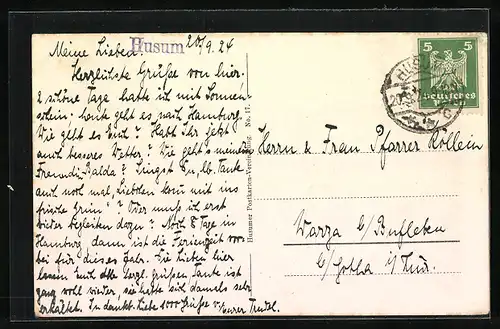 Husum 20/9.24
Meine Lieben!
Herzlichste Grüße von hier.
2 schöne Tage hatte ich mit Sonnen-
schein; heute geht es nach Hamburg.
Wie geht es Euch? Habt Ihr jetzt
auch besseres Wetter? Wie geht's meiner
Freundin? Singst Du, lb. Tante
auch noch mal, Liebchen komm mit ins
frische Grün"? Oder muß ich erst
wieder begleiten dazu? Noch 8 Tage in
Hamburg dann ist die Ferienzeit vor-
bei für dieses Jahr. Die Lieben hier
lassen Euch alle herzl. grüßen, Tante ist
ganz wohl wieder, sie hatte sich damals sehr
erkältet. In dankb. Liebe 1000 Grüße v. Eurer Trudel.
Husumer Postkarten-Vereinigung No. 17.
5 5
Deutsches
Reich
HUSUM
Herrn u. Frau Pfarrer Köllein
Warza b/Bufleben
b/Gotha i/Thür.